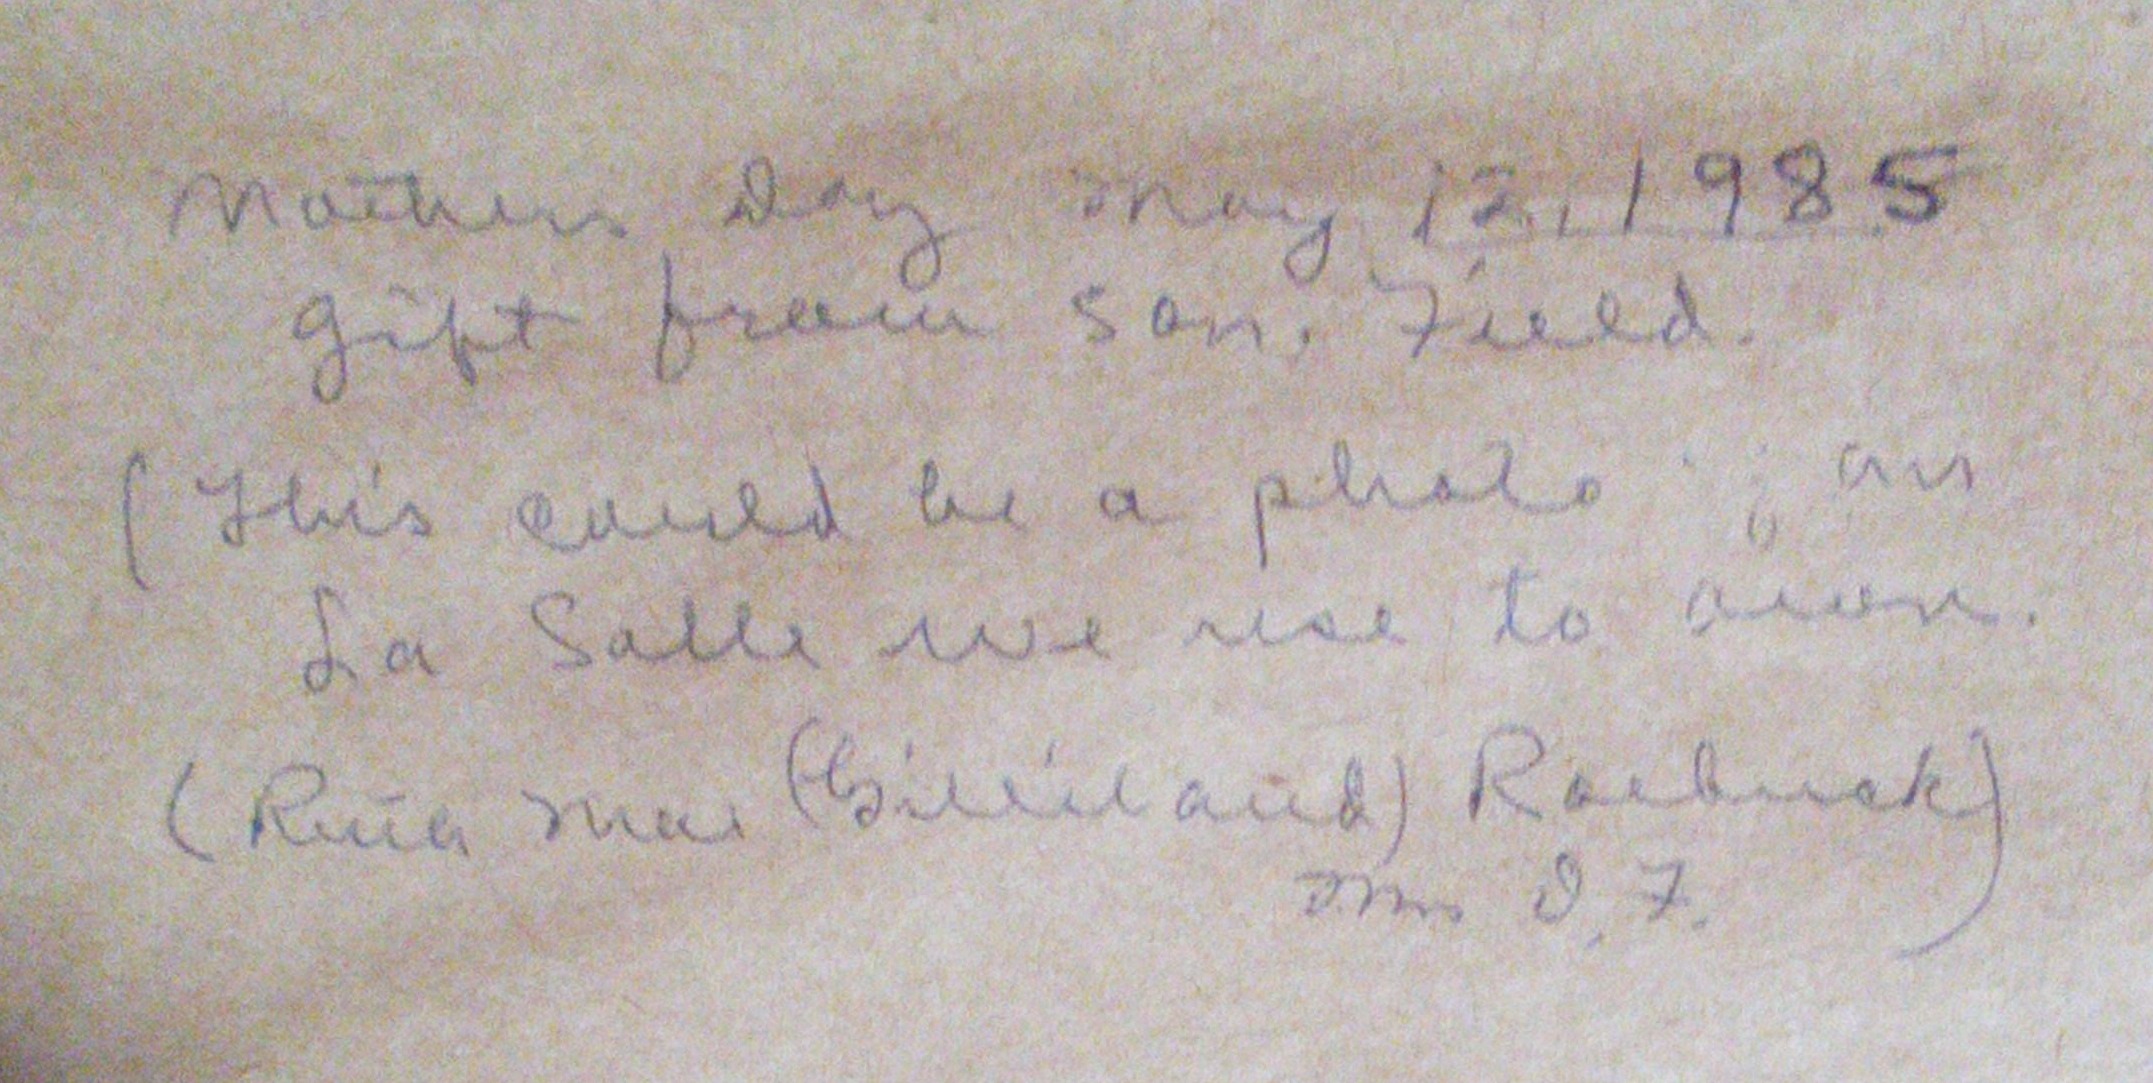 Mothers Day May 12, 1985
gift from son, Field.
(This could be a photo our
La Salle we use to own.
(Ruth Mae (Gilliland) Roebuck)
Mrs D. F.